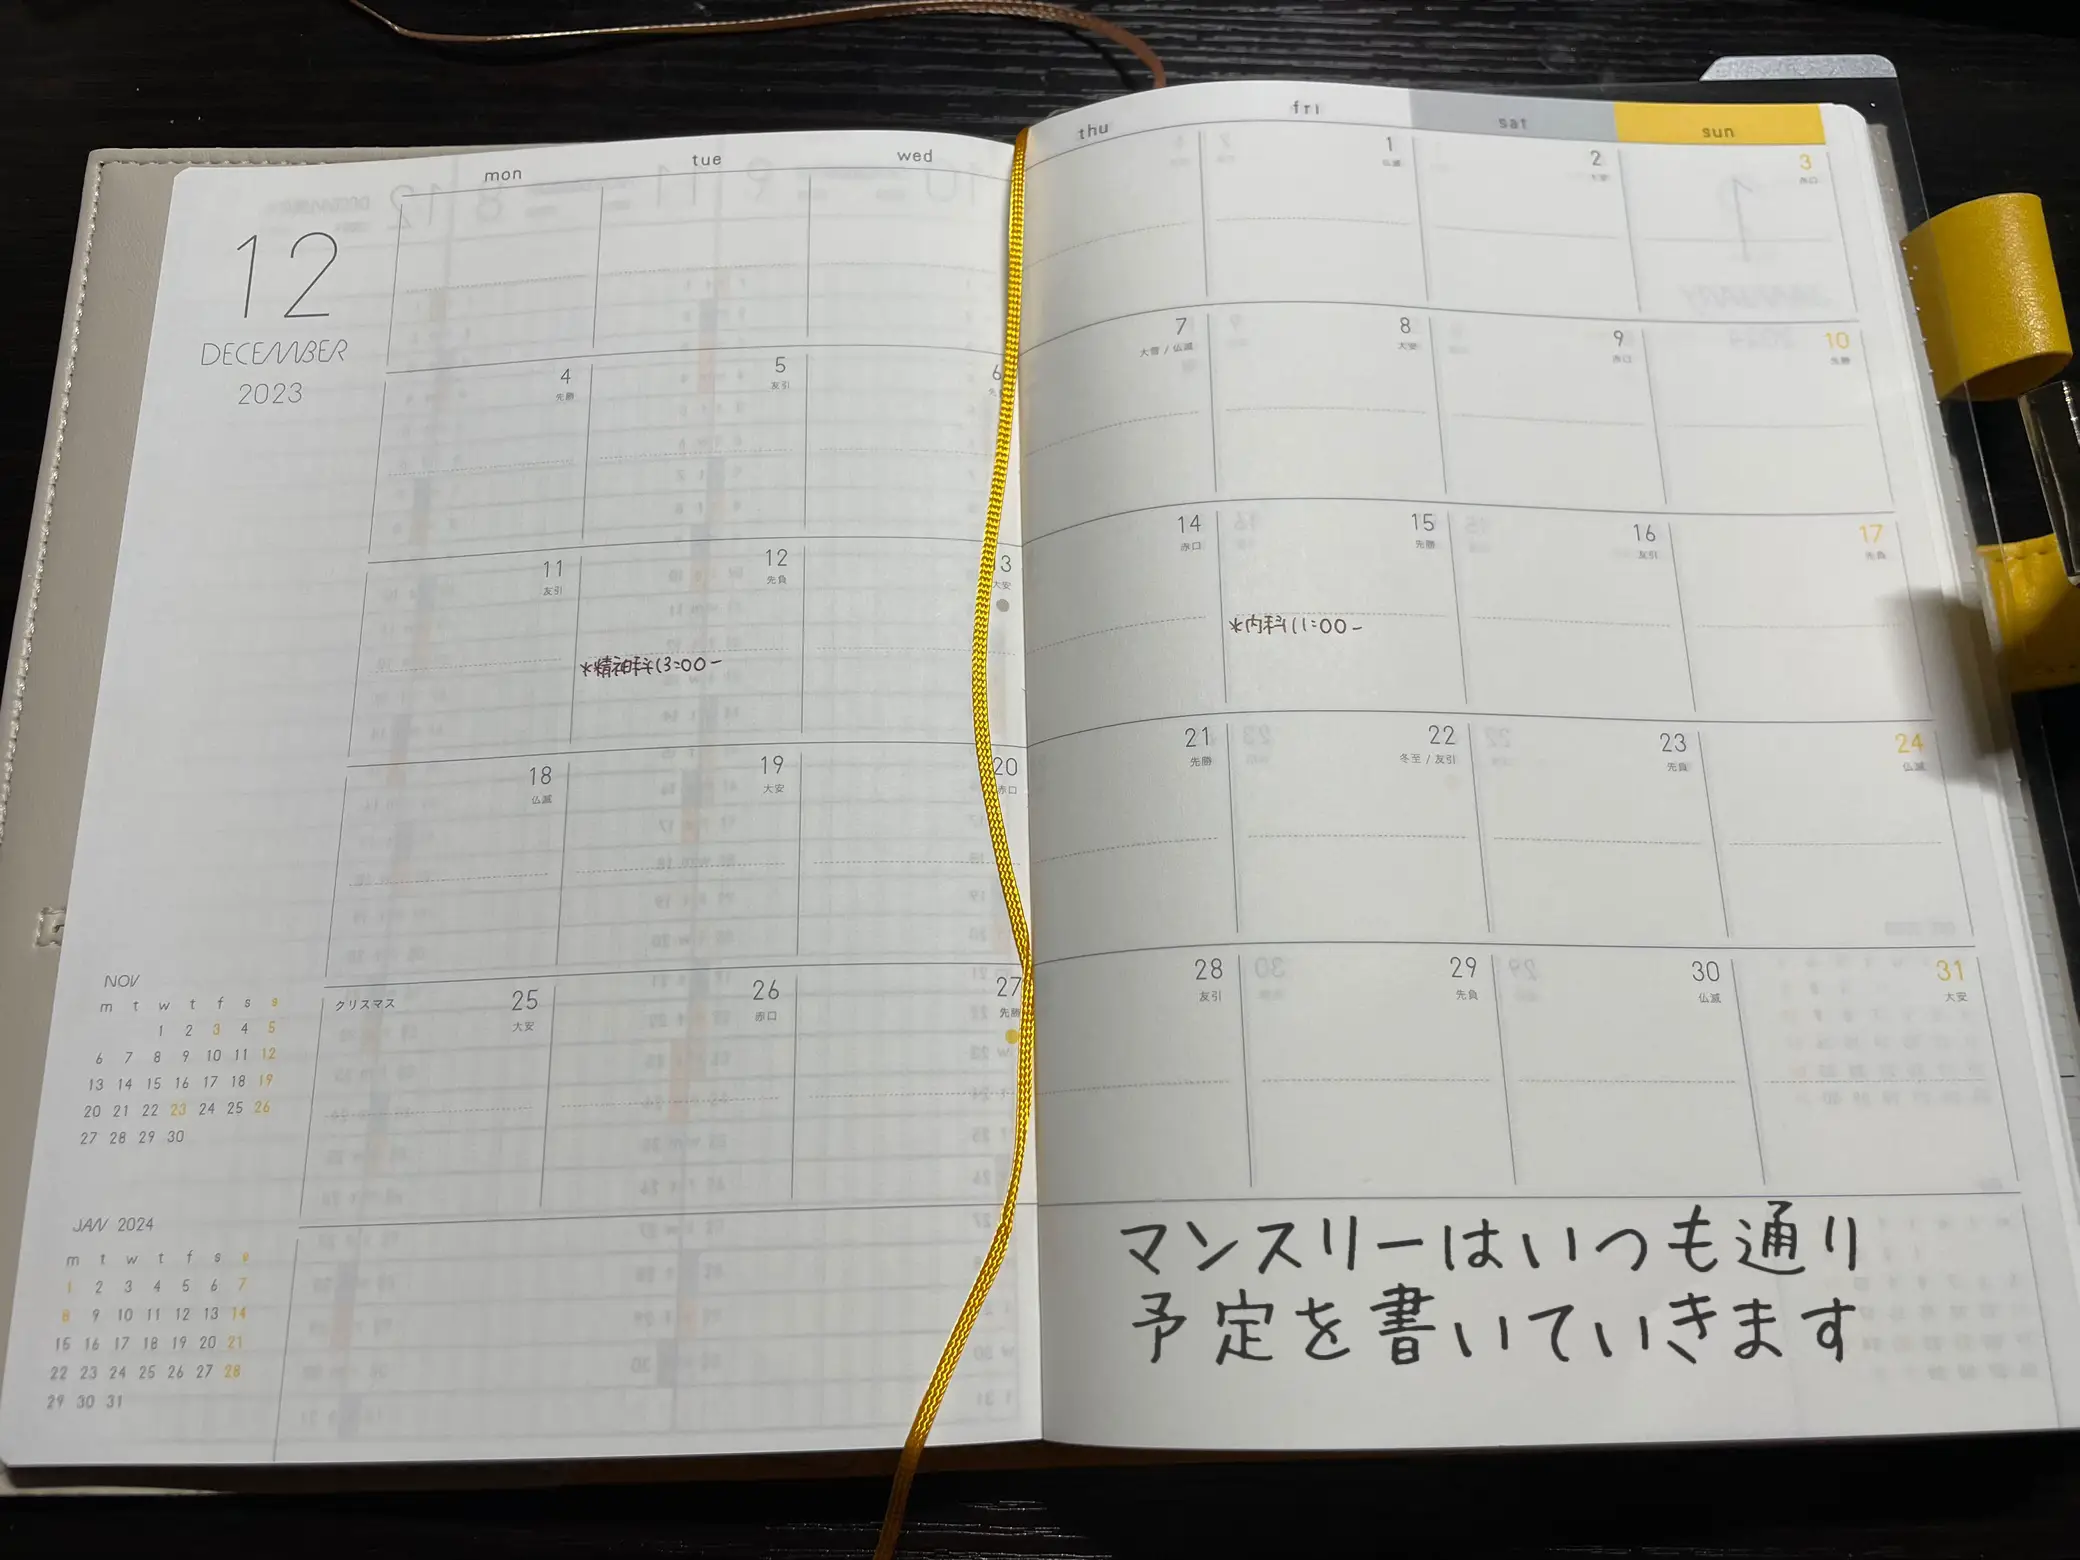 mon tue wed thu fri sat sun
12
DECEMBER
2023
1 仏滅
2 大安
3 赤口
4 先勝
5 友引
6
7 大雪 / 仏滅
8 大安
9 赤口
10 先勝
11 友引
12 先負
*精神科13:00-
13 大安
14 赤口
15 先勝
*内科11:00-
16 友引
17 先負
18 仏滅
19 大安
20 赤口
21 先勝
22 冬至 / 友引
23 先負
24 仏滅
クリスマス 25 大安
26 赤口
27 先勝
28 友引
29 先負
30 仏滅
31 大安
NOV
m t w t f s s
1 2 3 4 5
6 7 8 9 10 11 12
13 14 15 16 17 18 19
20 21 22 23 24 25 26
27 28 29 30
JAN 2024
m t w t f s s
1 2 3 4 5 6 7
8 9 10 11 12 13 14
15 16 17 18 19 20 21
22 23 24 25 26 27 28
29 30 31
マンスリーはいつも通り
予定を書いていきます